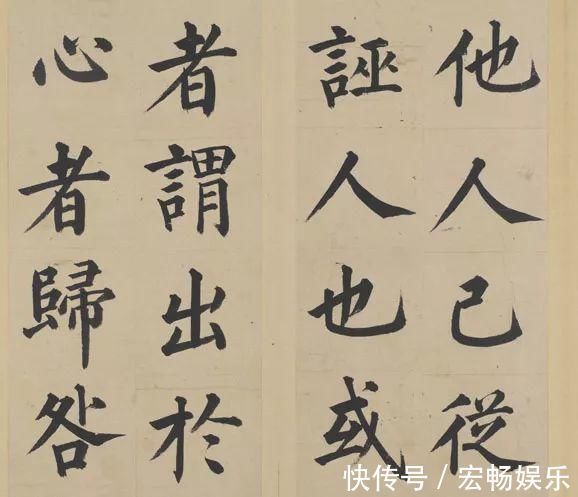 他人已從
誣人也或
者謂出於
心者歸咎
快传号／宏畅娱乐